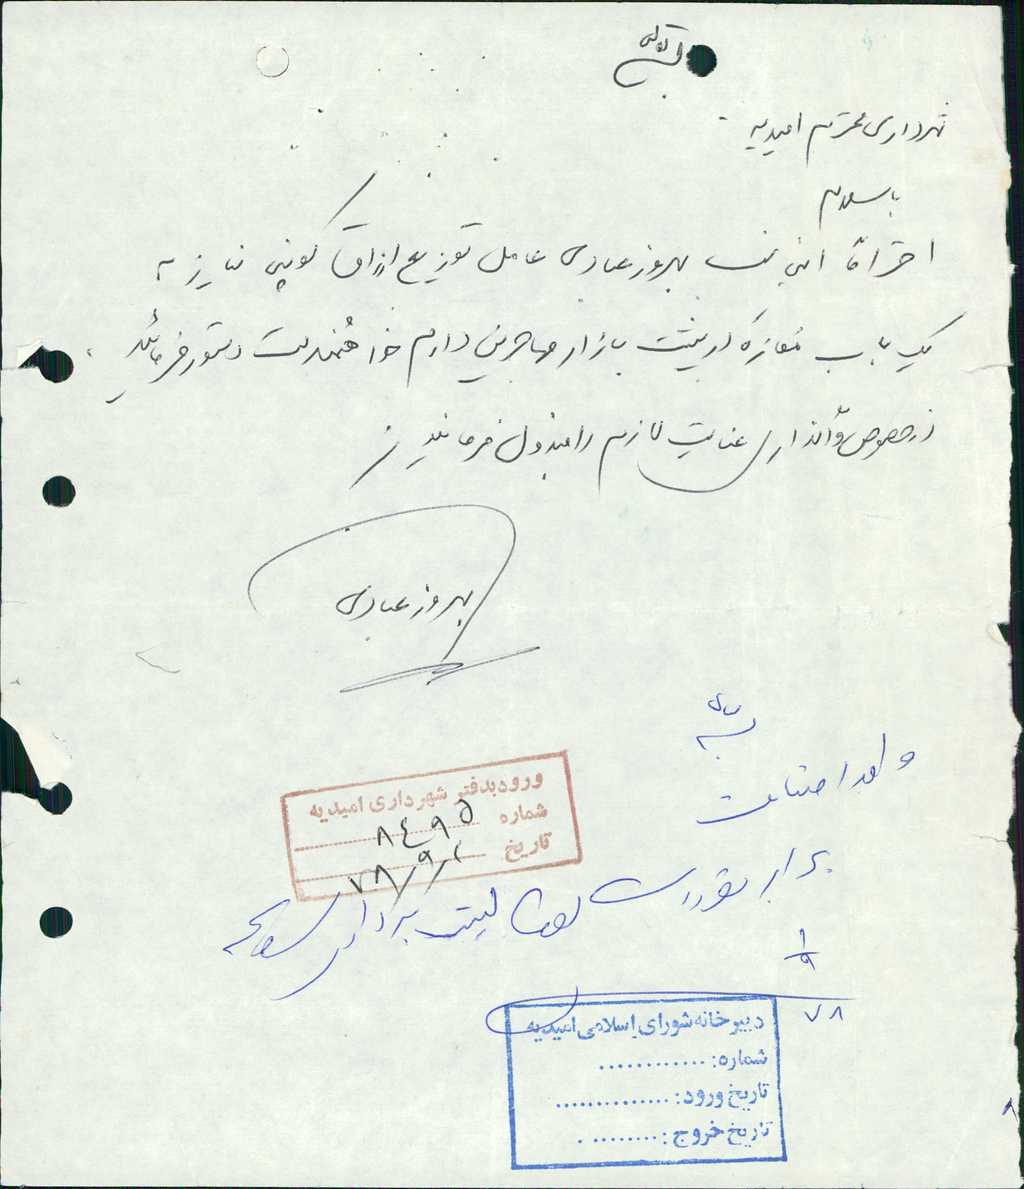 شهرداری محترم امیدیه
با سلام
احتراماً اینجانب بهروز عبادی عامل توزیع ارزاق کوپنی نیاز به
یک باب مغازه در پشت بازار مهاجرین دارم خواهشمندست دستور فرمائید
در خصوص واگذاری عنایت لازم را مبذول فرمائید
بهروز عبادی
ورود بدفتر شهرداری امیدیه
شماره ۸۴۹۵
تاریخ ۷۸/۹/۲
واحد اصناف
برابر مقررات
۱
۹
۷۸
دبیرخانه شورای اسلامی امیدیه
شماره: ............
تاریخ ورود: ..............
تاریخ خروج: .........